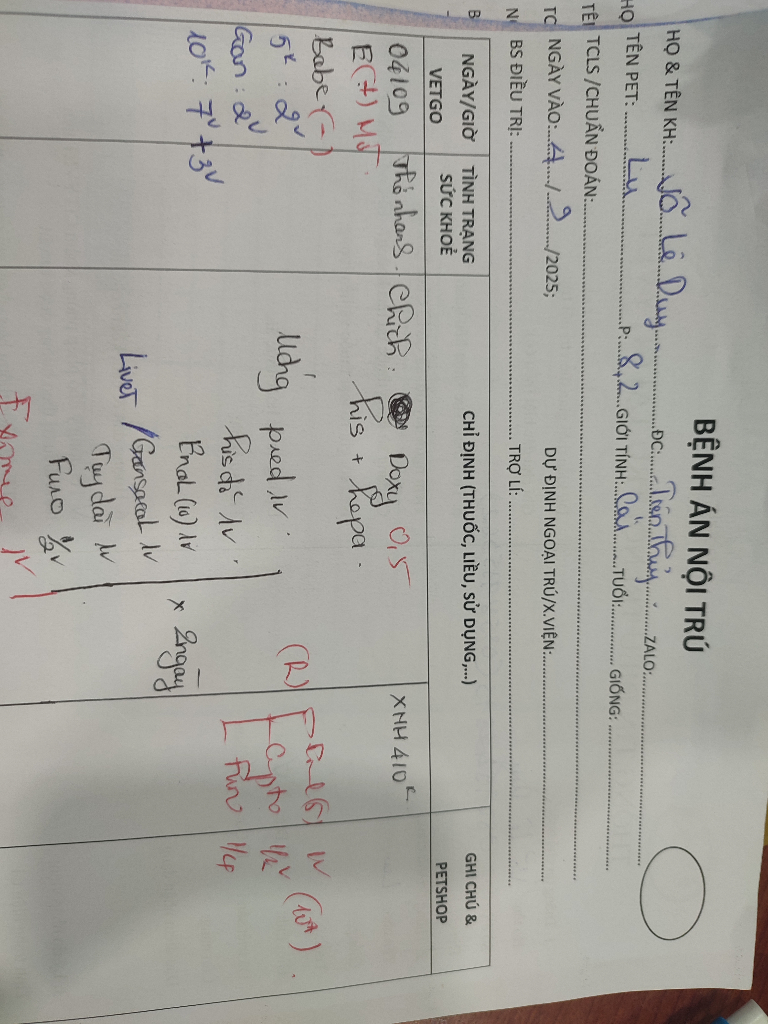 BỆNH ÁN NỘI TRÚ
HỌ & TÊN KH: Võ Lê Duy ĐC: Tiên Thủy ZALO:
HỌ TÊN PET: Lu P: 8,2 GIỚI TÍNH: Cái TUỔI: GIỐNG:
TÊ TCLS /CHUẨN ĐOÁN:
TC NGÀY VÀO: 4 / 9 /2025; DỰ ĐỊNH NGOẠI TRÚ/X.VIỆN:
N BS ĐIỀU TRỊ: TRỢ LÍ:
B
NGÀY/GIỜ VETGO
TÌNH TRẠNG SỨC KHOẺ
CHỈ ĐỊNH (THUỐC, LIỀU, SỬ DỤNG,...)
GHI CHÚ & PETSHOP
04/09
E(+)
Babe (-)
5k: 2v
Gan: 2v
10k: 7v + 3v
Thở nhanh.
Chích: Doxy 0,5
his + hepa.
Uống pred 1v.
his đỏ 1v.
Enal (10) 1v
Livet / 1v
1v
Furo 1/2v
x 2 ngày
1v
XNH 410k
(R) Enal (5) 1v (10k).
1/2v
Furo 1/4